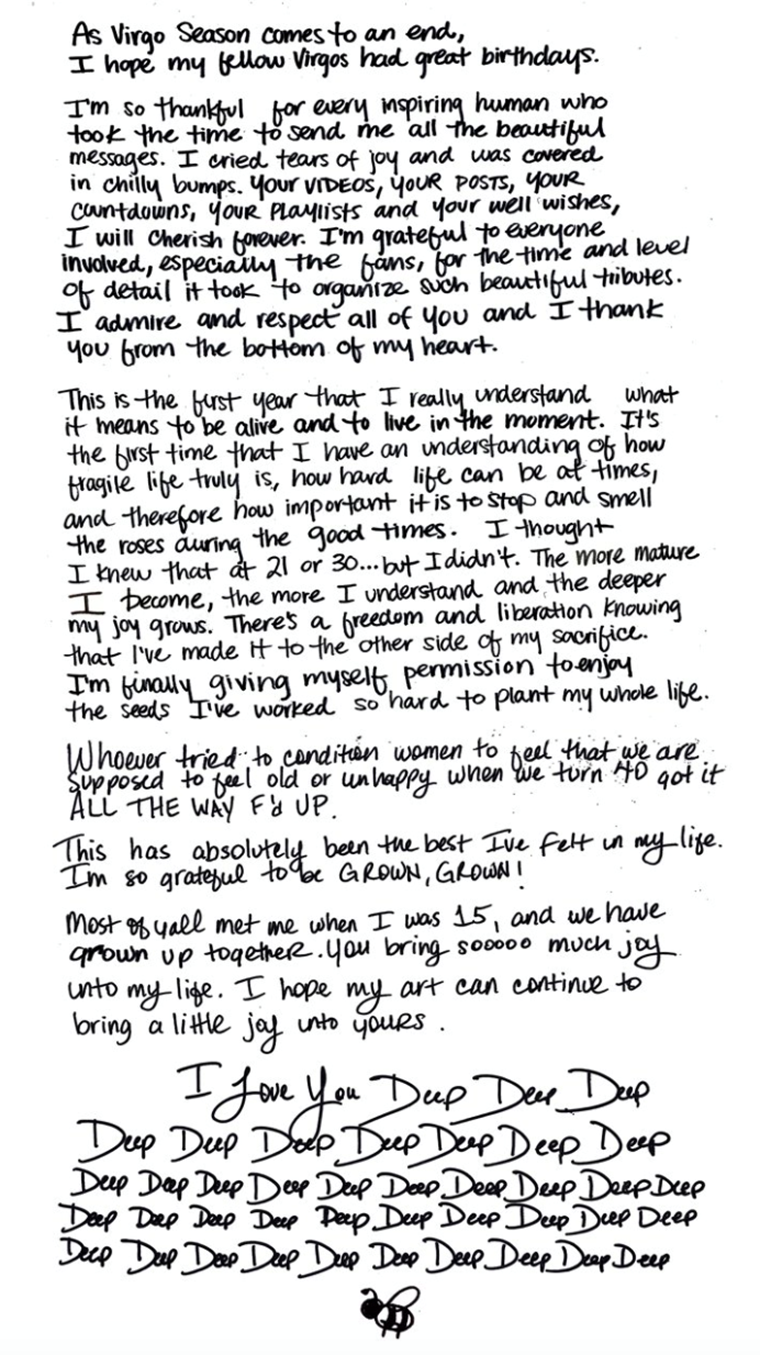 As Virgo Season comes to an end,
I hope my fellow Virgos had great birthdays.
I'm so thankful for every inspiring human who
took the time to send me all the beautiful
messages. I cried tears of joy and was covered
in chilly bumps. Your VIDEOS, YOUR POSTS, YOUR
COUNTDOWNS, YOUR PLAYLISTS and your well wishes,
I will cherish forever. I'm grateful to everyone
involved, especially the fans, for the time and level
of detail it took to organize such beautiful tributes.
I admire and respect all of you and I thank
you from the bottom of my heart.
This is the first year that I really understand what
it means to be alive and to live in the moment. It's
the first time that I have an understanding of how
fragile life truly is, how hard life can be at times,
and therefore how important it is to stop and smell
the roses during the good times. I thought
I knew that at 21 or 30...but I didn't. The more mature
I become, the more I understand and the deeper
my joy grows. There's a freedom and liberation knowing
that I've made it to the other side of my sacrifice.
I'm finally giving myself permission to enjoy
the seeds I've worked so hard to plant my whole life.
Whoever tried to condition women to feel that we are
supposed to feel old or unhappy when we turn 40 got it
ALL THE WAY F'd UP.
This has absolutely been the best I've felt in my life.
I'm so grateful to be GROWN, GROWN!
Most of yall met me when I was 15, and we have
grown up together. You bring sooooo much joy
unto my life. I hope my art can continue to
bring a little joy unto yours.
I Love You Deep Deep Deep
Deep Deep Deep Deep Deep Deep Deep
Deep Deep Deep Deep Deep Deep Deep Deep Deep Deep
Deep Deep Deep Deep Deep Deep Deep Deep Deep Deep
Deep Deep Deep Deep Deep Deep Deep Deep Deep Deep